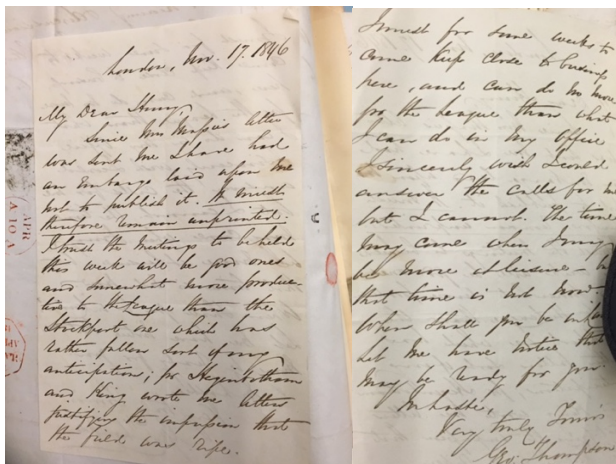 London, Nov. 17. 1846
My Dear Henry,
Since Mrs Massie's letter
was sent me I have had
an Embargo laid upon me
not to publish it. It must
therefore remain unprinted.
I trust the meetings to be held
this week will be good ones
and somewhat more produc-
tive to the League than the
Stockport one which has
rather fallen short of my
anticipation; for Higinbotham
and King wrote me letters
justifying the impression that
the field was ripe.
APR
A 10 A
I must for some weeks to
come keep close to business
here, and can do no more
for the League than what
I can do in my office
I sincerely wish I could
answer the calls for me
but I cannot. The time
may come when I may
be more at leisure
that time is not now
When shall you be
Let me have notice that
may be ready for you.
In haste,
Very truly Yours
Geo. Thompson